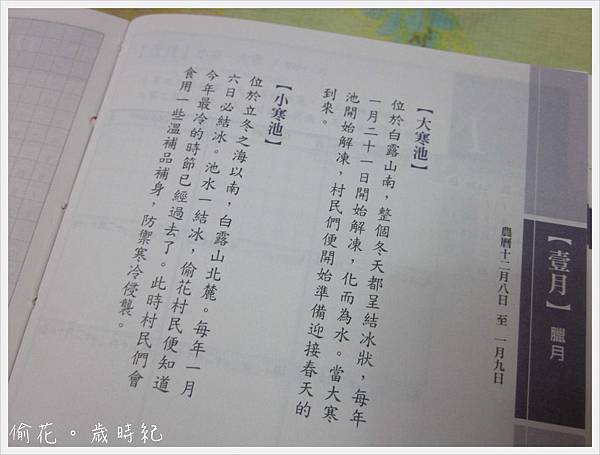 【壹月】 臘月
農曆十二月八日 至 一月九日
【大寒池】
位於白露山南，整個冬天都呈結冰狀，每年
一月二十一日開始解凍，化而為水。當大寒
池開始解凍，村民們便開始準備迎接春天的
到來。
【小寒池】
位於立冬之海以南，白露山北麓。每年一月
六日必結冰。池水一結冰，偷花村民便知道
今年最冷的時節已經過去了。此時村民們會
食用一些溫補品補身，防禦寒冷侵襲。
偷花。歲時紀